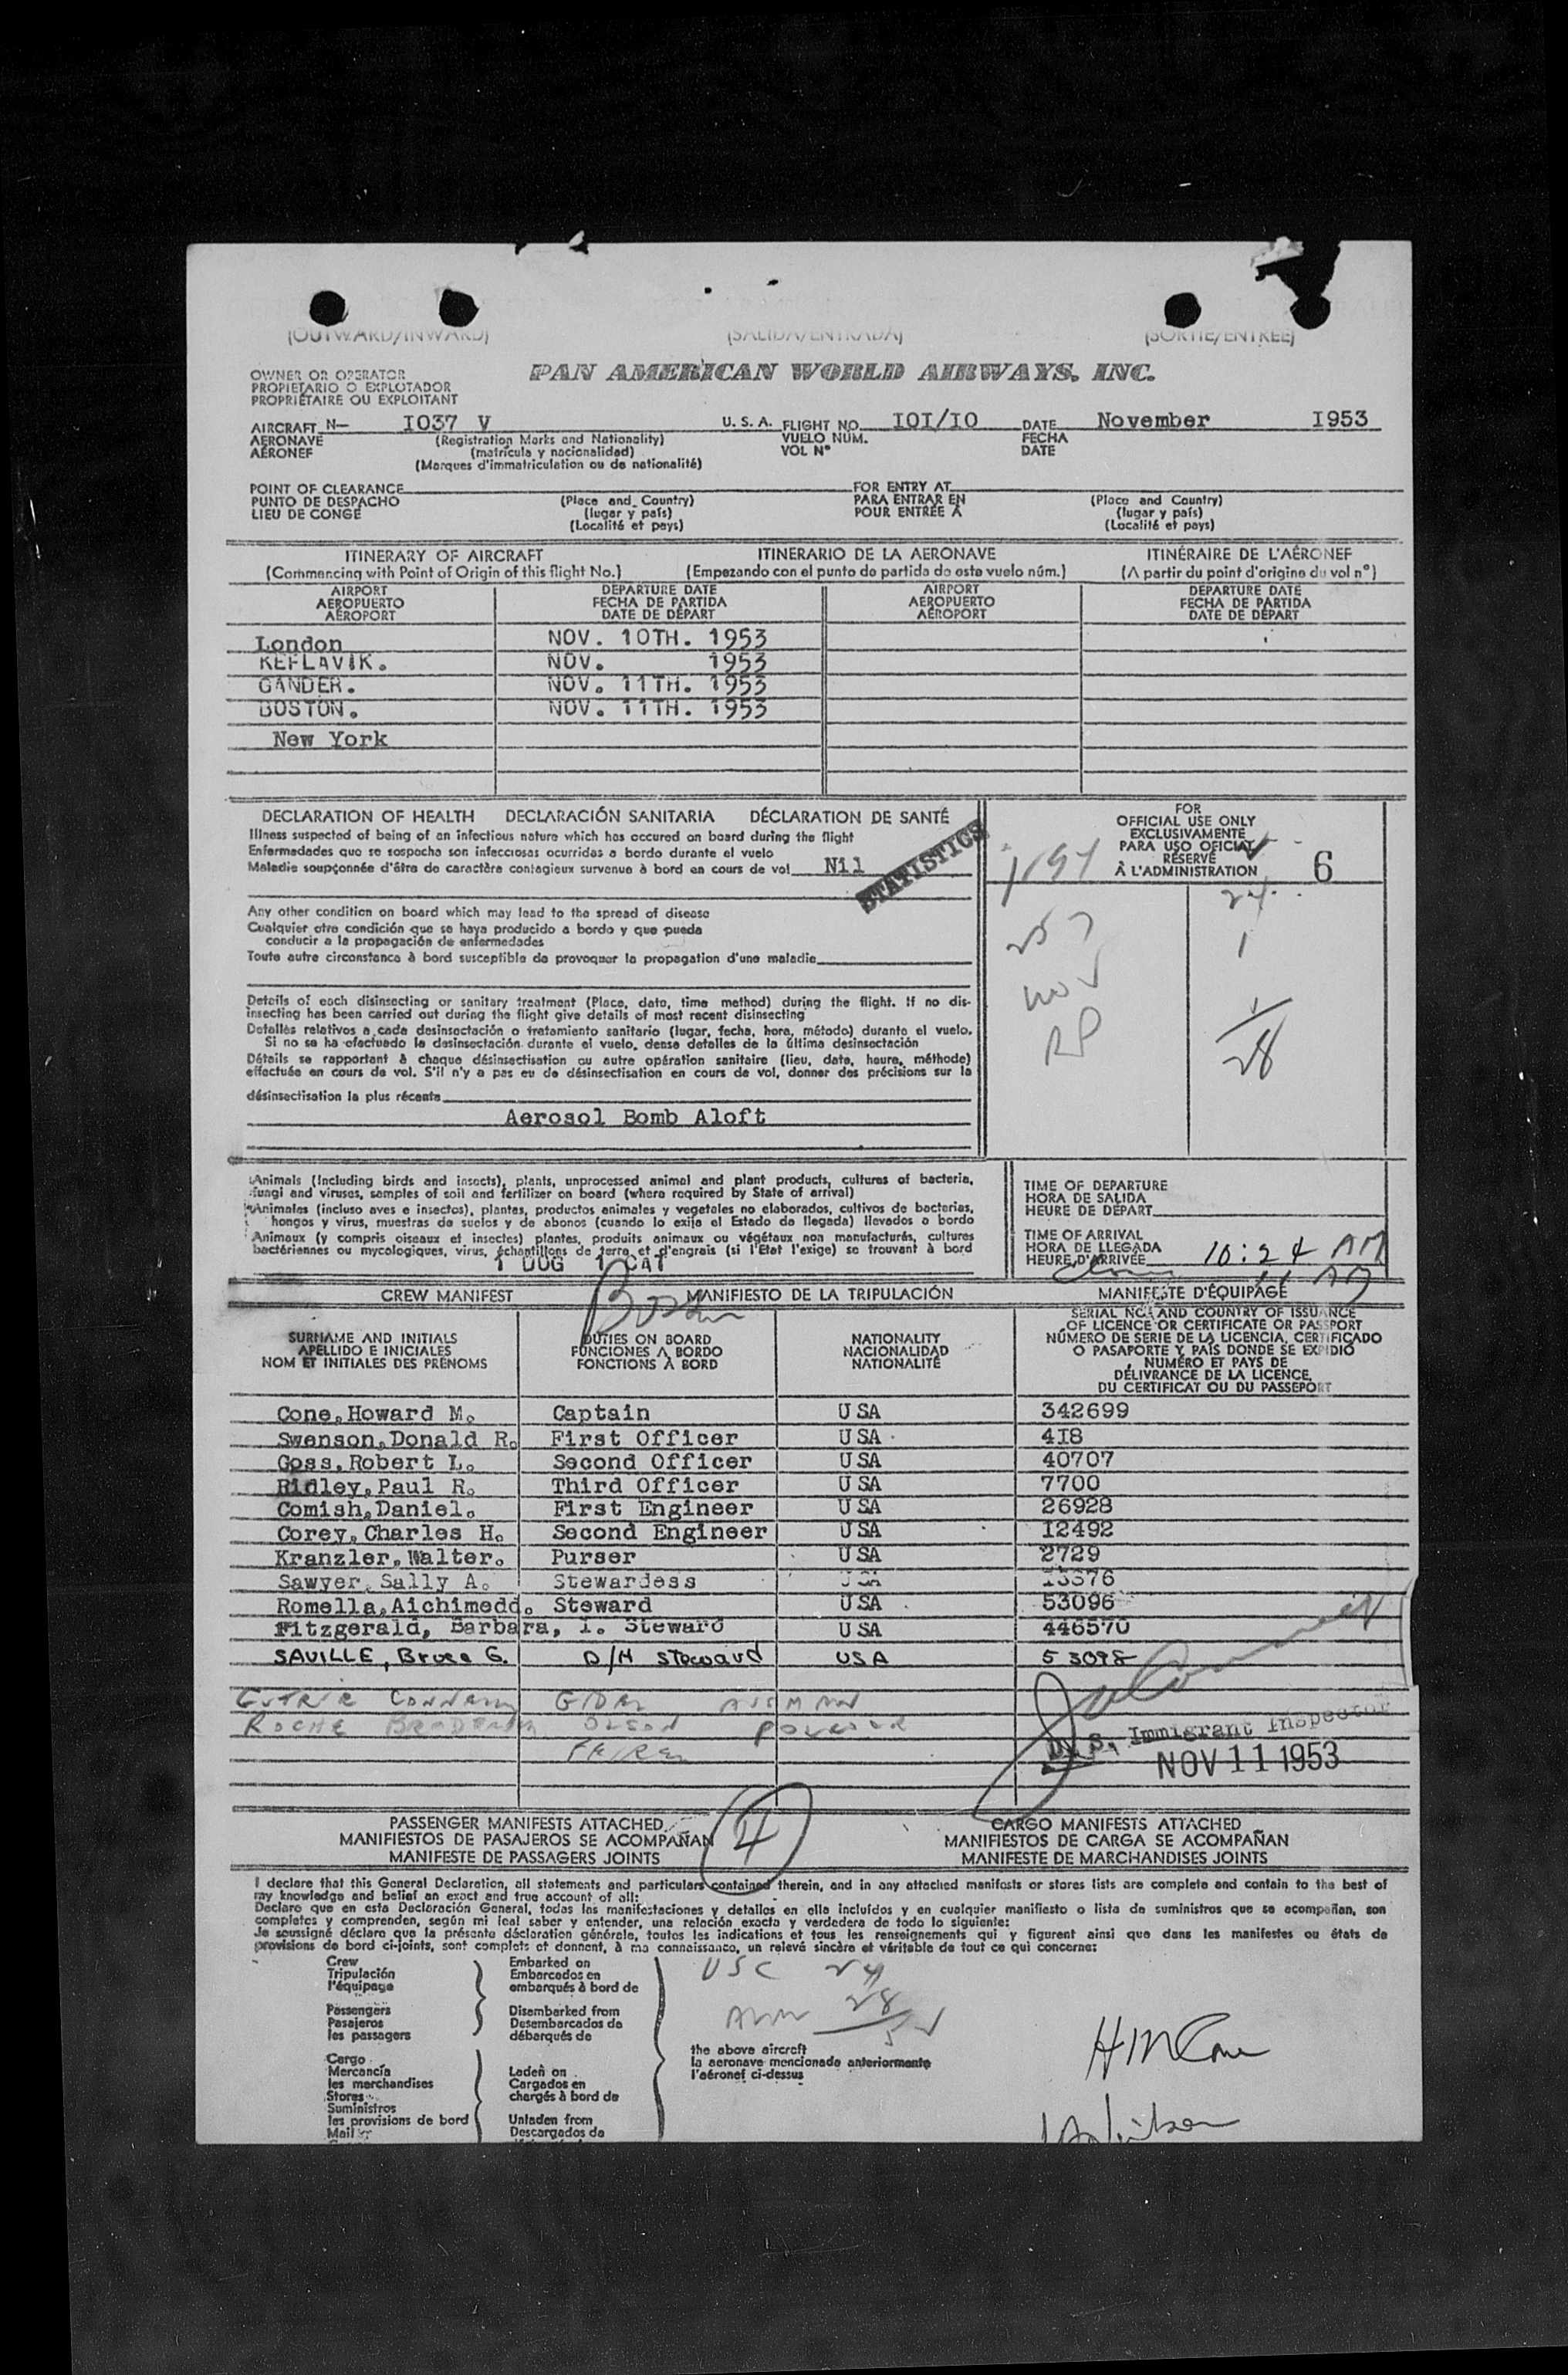 (OUTWARD/INWARD) (SALIDA/ENTRADA) (SORTIE/ENTREE)
OWNER OR OPERATOR
PROPIETARIO O EXPLOTADOR
PROPRIÉTAIRE OU EXPLOITANT
PAN AMERICAN WORLD AIRWAYS, INC.
AIRCRAFT N- I037 V U.S.A. FLIGHT NO. IOI/IO DATE November I953
AERONAVE (Registration Marks and Nationality) VUELO NÚM. FECHA
AÉRONEF (matrícula y nacionalidad) VOL N° DATE
(Marques d'immatriculation ou de nationalité)
POINT OF CLEARANCE FOR ENTRY AT
PUNTO DE DESPACHO (Place and Country) PARA ENTRAR EN (Place and Country)
LIEU DE CONGÉ (lugar y país) POUR ENTRÉE À (lugar y país)
(Localité et pays) (Localité et pays)
ITINERARY OF AIRCRAFT ITINERARIO DE LA AERONAVE ITINÉRAIRE DE L'AÉRONEF
(Commencing with Point of Origin of this flight No.) (Empezando con el punto de partida de este vuelo núm.) (A partir du point d'origine du vol n°)
AIRPORT DEPARTURE DATE AIRPORT DEPARTURE DATE
AEROPUERTO FECHA DE PARTIDA AEROPUERTO FECHA DE PARTIDA
AÉROPORT DATE DE DÉPART AÉROPORT DATE DE DÉPART
London NOV. 10TH. 1953
KEFLAVIK. NOV. 1953
GANDER. NOV. 11TH. 1953
BOSTON. NOV. 11TH. 1953
New York
DECLARATION OF HEALTH DECLARACIÓN SANITARIA DÉCLARATION DE SANTÉ
Illness suspected of being of an infectious nature which has occured on board during the flight
Enfermedades que se sospecha son infecciosas ocurridas a bordo durante el vuelo
Maladie soupçonnée d'être de caractère contagieux survenue à bord en cours de vol Nil
STATISTICS
FOR
OFFICIAL USE ONLY
EXCLUSIVAMENTE
PARA USO OFICIAL
RÉSERVÉ
À L'ADMINISTRATION 6
24
257
1
NOV
RP
28
Any other condition on board which may lead to the spread of disease
Cualquier otra condición que se haya producido a bordo y que pueda
conducir a la propagación de enfermedades
Toute autre circonstance à bord susceptible de provoquer la propagation d'une maladie
Details of each disinsecting or sanitary treatment (Place, date, time method) during the flight. If no dis-
insecting has been carried out during the flight give details of most recent disinsecting
Detalles relativos a cada desinsectación o tratamiento sanitario (lugar, fecha, hora, método) durante el vuelo.
Si no se ha efectuado la desinsectación durante el vuelo, dense detalles de la última desinsectación
Détails se rapportant à chaque désinsectisation ou autre opération sanitaire (lieu, date, heure, méthode)
effectuée en cours de vol. S'il n'y a pas eu de désinsectisation en cours de vol, donner des précisions sur la
désinsectisation la plus récente
Aerosol Bomb Aloft
Animals (Including birds and insects), plants, unprocessed animal and plant products, cultures of bacteria,
fungi and viruses, samples of soil and fertilizer on board (where required by State of arrival)
Animales (incluso aves e insectos), plantas, productos animales y vegetales no elaborados, cultivos de bacterias,
hongos y virus, muestras de suelos y de abonos (cuando lo exija el Estado de llegada) llevados a bordo
Animaux (y compris oiseaux et insectes) plantes, produits animaux ou végétaux non manufacturés, cultures
bactériennes ou mycologiques, virus, échantillons de terre et d'engrais (si l'Etat l'exige) se trouvant à bord
1 DOG 1 CAT
TIME OF DEPARTURE
HORA DE SALIDA
HEURE DE DÉPART
TIME OF ARRIVAL
HORA DE LLEGADA
HEURE D'ARRIVÉE 10:24 AM
Boston
CREW MANIFEST MANIFIESTO DE LA TRIPULACIÓN MANIFESTE D'ÉQUIPAGE
SURNAME AND INITIALS DUTIES ON BOARD NATIONALITY SERIAL NO. AND COUNTRY OF ISSUANCE
APELLIDO E INICIALES FUNCIONES A BORDO NACIONALIDAD OF LICENCE OR CERTIFICATE OR PASSPORT
NOM ET INITIALES DES PRÉNOMS FONCTIONS À BORD NATIONALITÉ NÚMERO DE SERIE DE LA LICENCIA, CERTIFICADO
O PASAPORTE Y PAÍS DONDE SE EXPIDIÓ
NUMÉRO ET PAYS DE
DÉLIVRANCE DE LA LICENCE,
DU CERTIFICAT OU DU PASSEPORT
Cone, Howard M. Captain USA 342699
Swenson, Donald R. First Officer USA 4I8
Goss, Robert L. Second Officer USA 40707
Ridley, Paul R. Third Officer USA 7700
Comish, Daniel. First Engineer USA 26928
Corey, Charles H. Second Engineer USA I2492
Kranzler, Walter. Purser USA 2729
Sawyer, Sally A. Stewardess USA I3376
Romella, Aichimedd. Steward USA 53096
Fitzgerald, Barbara, I. Steward USA 446570
SAVILLE, Bruce G. D/H steward USA 53098
ROCHE OLSON
U. S. Immigrant Inspector
NOV 11 1953
PASSENGER MANIFESTS ATTACHED CARGO MANIFESTS ATTACHED
MANIFIESTOS DE PASAJEROS SE ACOMPAÑAN 4 MANIFIESTOS DE CARGA SE ACOMPAÑAN
MANIFESTE DE PASSAGERS JOINTS MANIFESTE DE MARCHANDISES JOINTS
I declare that this General Declaration, all statements and particulars contained therein, and in any attached manifests or stores lists are complete and contain to the best of
my knowledge and belief an exact and true account of all:
Declaro que en esta Declaración General, todas las manifestaciones y detalles en ella incluídos y en cualquier manifiesto o lista de suministros que se acompañan, son
completos y comprenden, según mi leal saber y entender, una relación exacta y verdadera de todo lo siguiente:
Je soussigné déclare que la présente déclaration générale, toutes les indications et tous les renseignements qui y figurent ainsi que dans les manifestes ou états de
provisions de bord ci-joints, sont complets et donnent, à ma connaissance, un relevé sincère et véritable de tout ce qui concerne:
Crew Embarked on USC 24
Tripulación Embarcados en
l'équipage embarqués à bord de 28
Passengers Disembarked from
Pasajeros Desembarcados de
les passagers débarqués de
the above aircraft
la aeronave mencionada anteriormente
l'aéronef ci-dessus
HM Cone
Cargo
Mercancía Laden on
les marchandises Cargados en
Stores chargés à bord de
Suministros
les provisions de bord Unladen from
Mail Descargados de